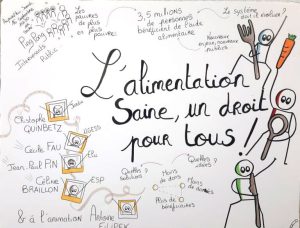 Les pauvres
de plus
en plus
pauvres
3,5 millions
de personnes
bénéficient de l'aide
alimentaire
Le système
doit-il évoluer ?
Nouveaux
enjeux, nouveaux
publics
Intervenants
Public
L'alimentation
Saine, un droit
pour tous !
Christophe
QUINBETZ
Cécile FAU
Jean-Paul PIN
Elu
Céline
BRAILLON
ESP
Quelles
solutions
Quelles
idées
Moins
de dons
Moins
de denrées
Plus de
bénéficiaires
& à l'animation
Antoine
FILPEK